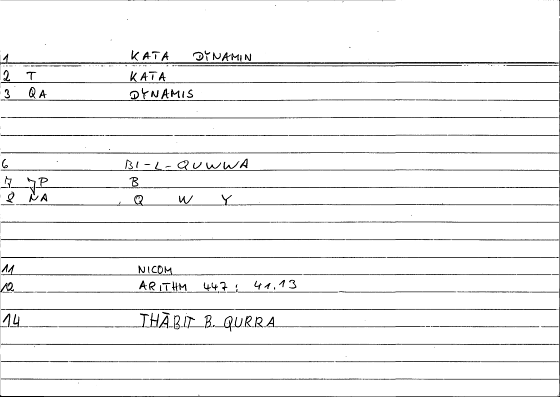 1 KATA DYNAMIN
2 T KATA
3 QA DYNAMIS
6 BI-L-QUWWA
7 JP B
8 NA Q W Y
11 NICOM
12 ARITHM 447: 41.13
14 THĀBIT B. QURRA